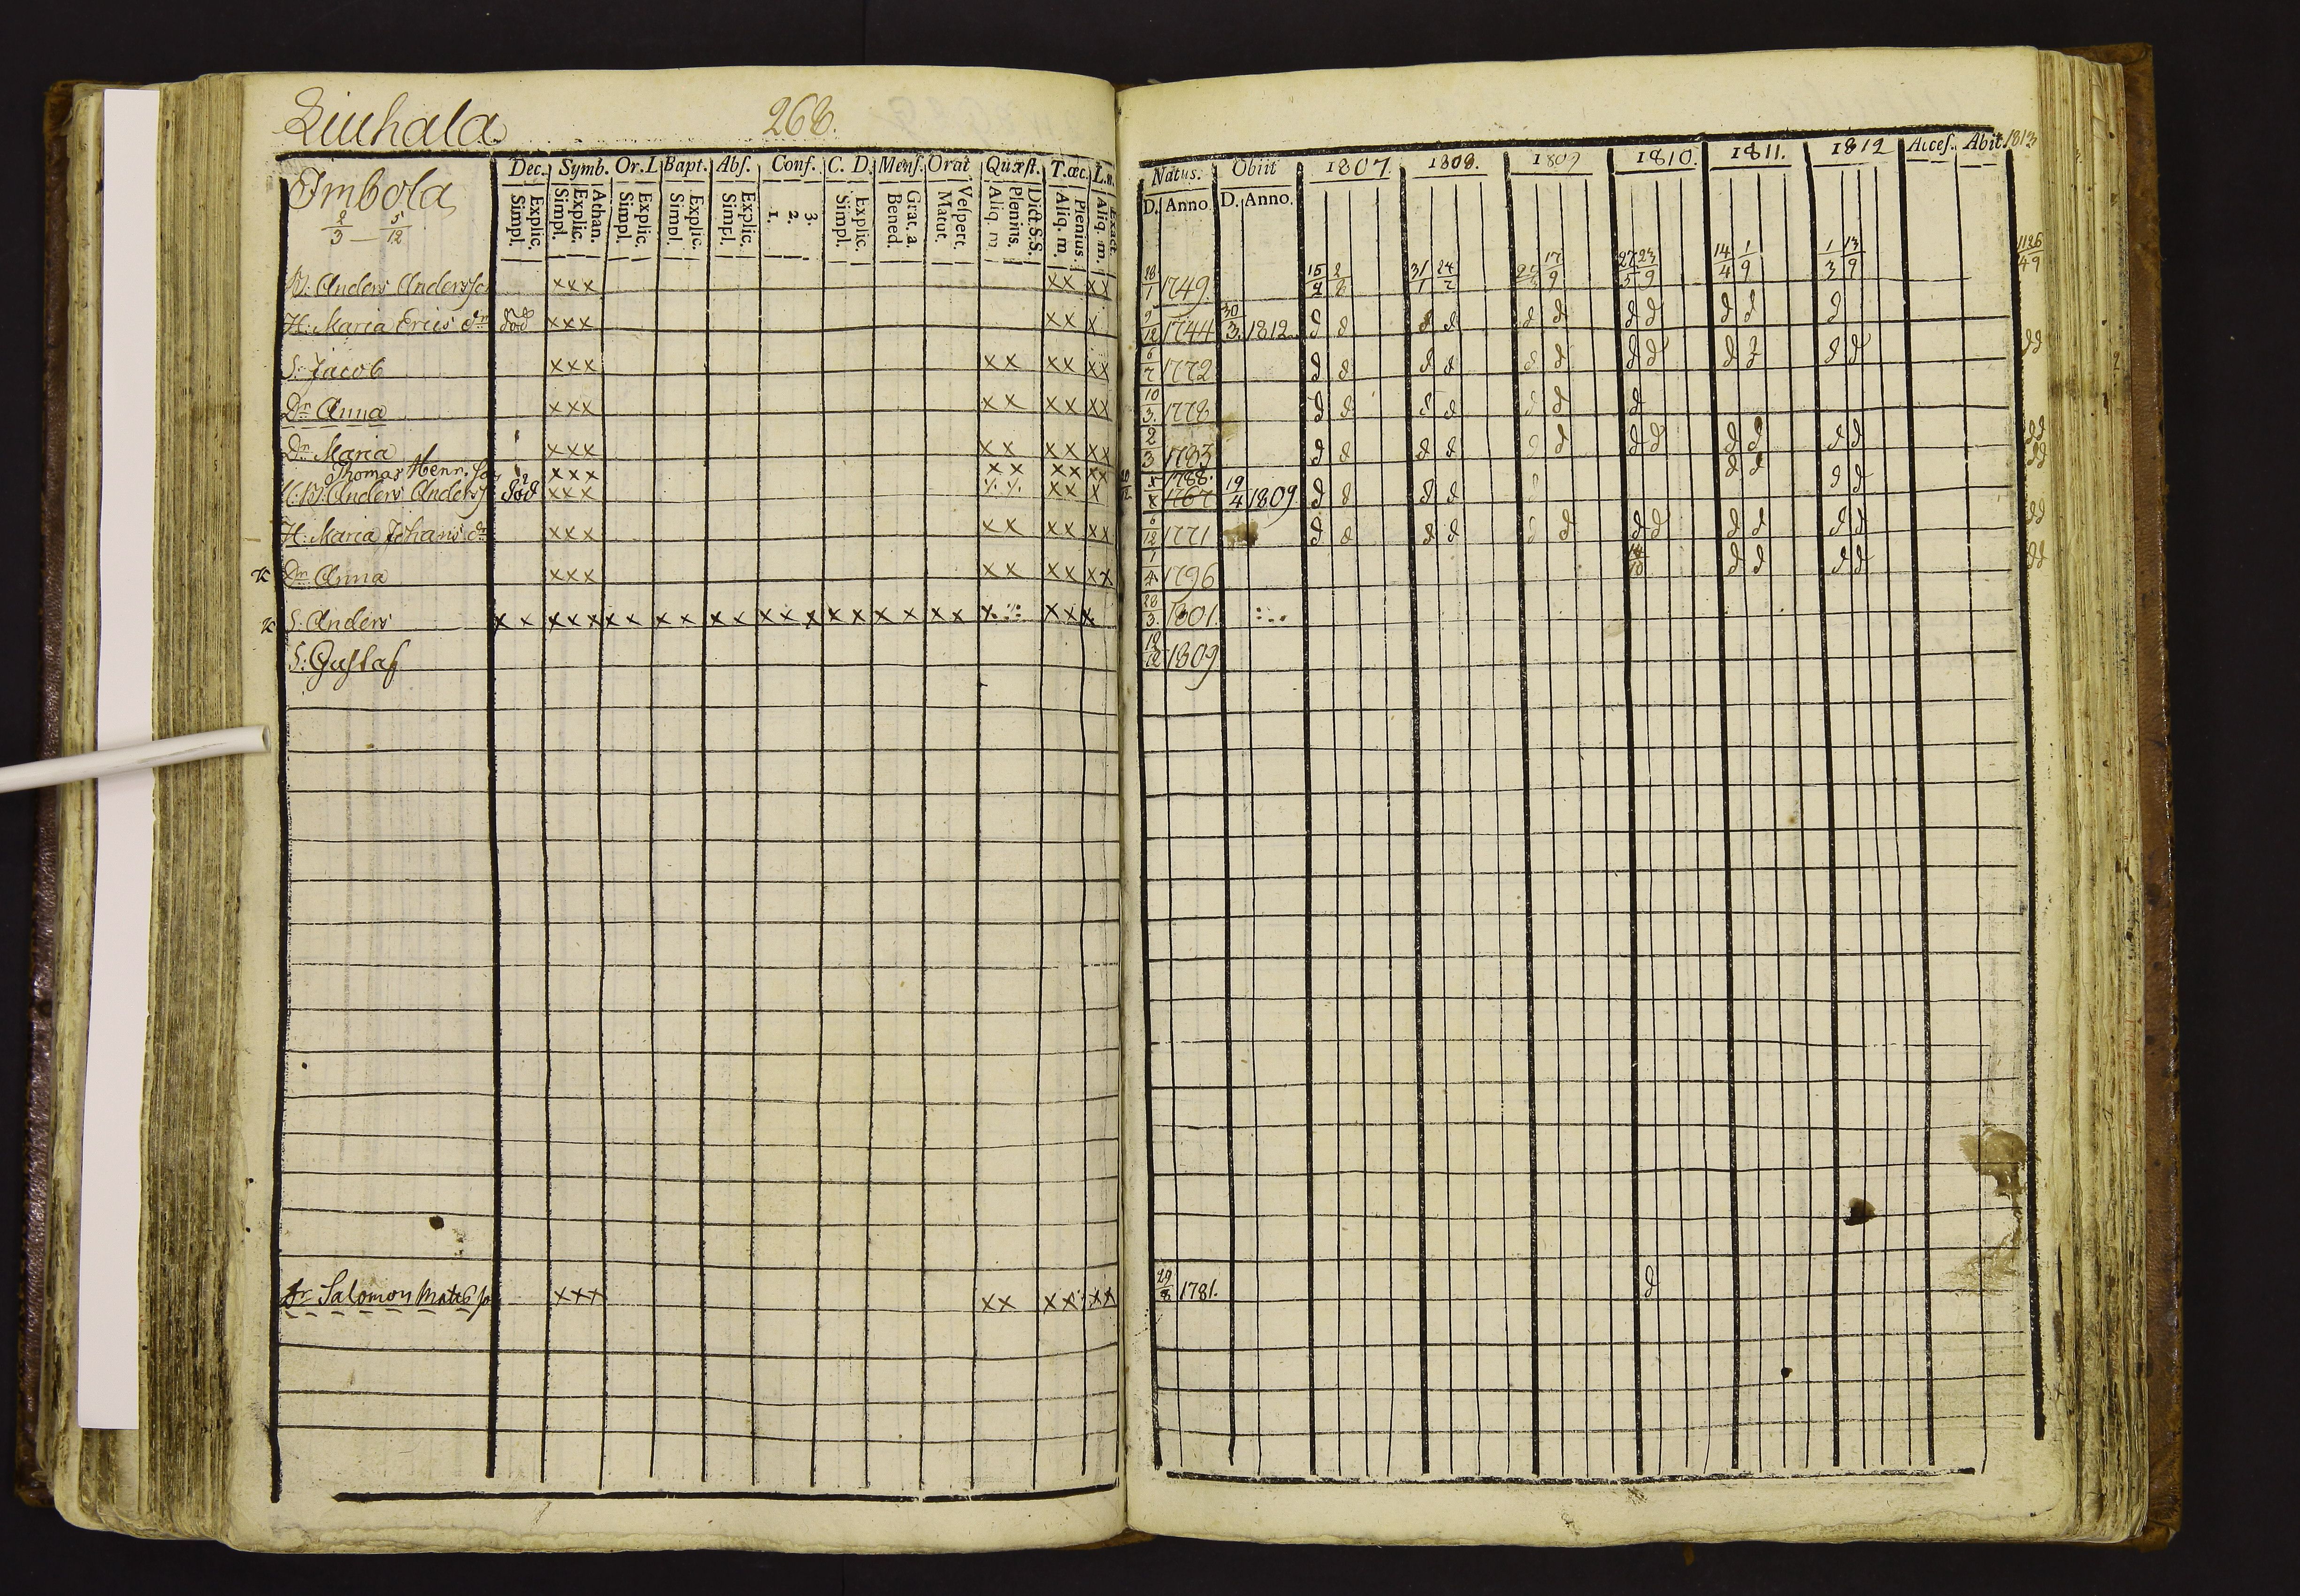 Liuhala 268.
Imbola
2/3 — 5/12
Dec. Symb. Or. L Bapt. Abs. Conf. C. D. Mens. Orat Quæst. T. œc. L. n.
Explic. Simpl. Athan. Explic. Simpl. Explic. Simpl. Explic. Simpl. Explic. Simpl. 3. 2. 1. Explic. Simpl. Grat. a. Bened. Vespert. Matut. Dict. S.S. Plenius. Aliq. m. Plenius. Aliq. m. Exact. Aliq. m.
Natus. Obiit 1807. 1808. 1809 1810. 1811. 1812 Acces. Abit. 1813
D. Anno. D. Anno.
B: Anders Anderss xxx xx xx 28/1 1749. 31/1 17/9 27/5 23/9 14/4 1/9 1/3 13/9
H: Maria Erics dr död xxx xx x 9/12 1744 30/3 1812. d d d d d d d d d d d
S: Jacob xxx xx xx xx 6/7 1772 d d d d d d d d d d d d dd
Dr Anna xxx xx xx xx 10/3. 1778 d d d d d d d
Dr Maria xxx xx xx xx 2/3 1783 d d d d d d d d d d d d
Thomas Henr. So xxx xx xx xx 1788. d d d d
Anders Anderss död xxx xx x 1767 19/4 1809 d d d d d
H: Maria Johans dr xxx xx xx xx 6/12 1771 d d d d d d d d d d d d dd
Dr Anna xxx xx xx xx 1/4 1796 14/10 d d d d dd
S: Anders x x xxx x x x x x x x x x x x x x x x xxx 28/3 1801.
S: Gustaf 1809
Dr Salomon Mats So xxx xx xx xx 29/8 1781. d